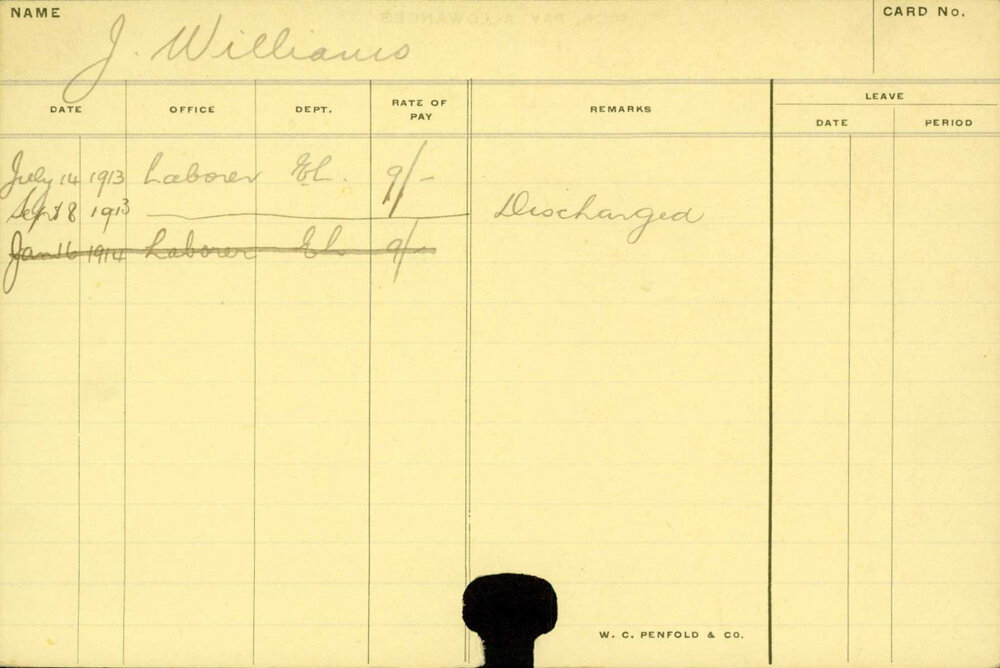 NAME J. Williams CARD No.
DATE OFFICE DEPT. RATE OF PAY REMARKS LEAVE
DATE PERIOD
July 14 1913 Laborer EL. 9/-
Sept 8 1913 Discharged
Jan 16 1914 Laborer EL 9/-
W. C. PENFOLD & CO.